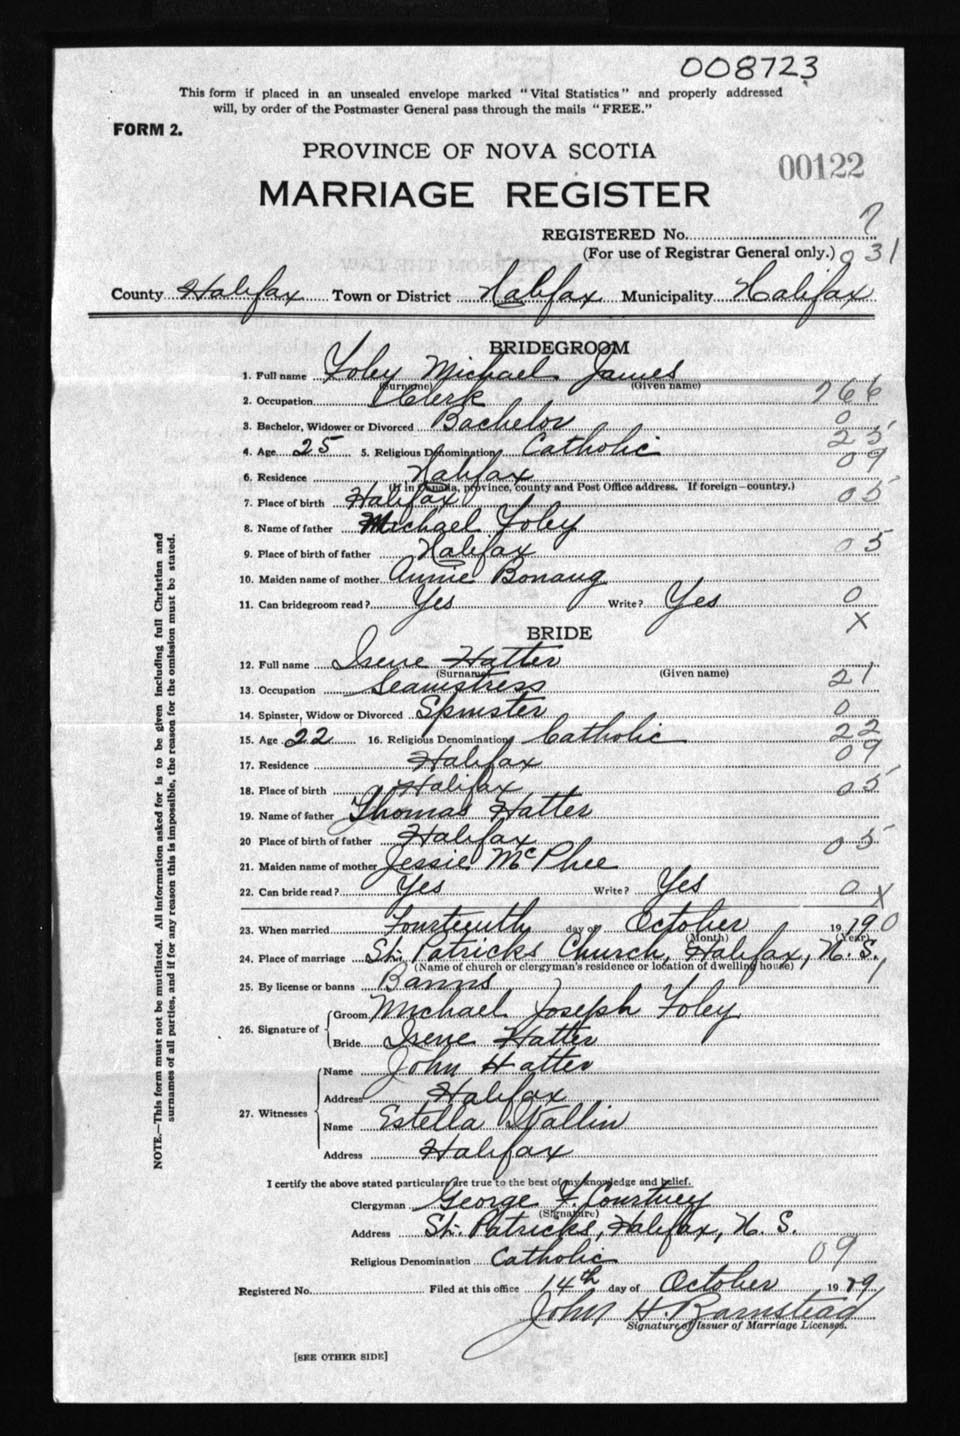 008723
This form if placed in an unsealed envelope marked "Vital Statistics" and properly addressed
will, by order of the Postmaster General pass through the mails "FREE."
FORM 2.
PROVINCE OF NOVA SCOTIA
00122
MARRIAGE REGISTER
REGISTERED No. 7
(For use of Registrar General only.) 031
County Halifax Town or District Halifax Municipality Halifax
BRIDEGROOM
1. Full name Foley Michael James
(Surname) (Given name)
2. Occupation Clerk 766
3. Bachelor, Widower or Divorced Bachelor 0
4. Age 25 5. Religious Denomination Catholic 25
6. Residence Halifax 09
(If in Canada, province, county and Post Office address. If foreign—country.)
7. Place of birth Halifax 05
8. Name of father Michael Foley
9. Place of birth of father Halifax 05
10. Maiden name of mother Annie Bonaug
11. Can bridegroom read? Yes Write? Yes 0
X
BRIDE
12. Full name Irene Hatter
(Surname) (Given name)
13. Occupation Seamstress 21
14. Spinster, Widow or Divorced Spinster 0
15. Age 22 16. Religious Denomination Catholic 22
17. Residence Halifax 09
18. Place of birth Halifax 05
19. Name of father Thomas Hatter
20 Place of birth of father Halifax 05
21. Maiden name of mother Jessie McPhee
22. Can bride read? Yes Write? Yes 0 X
23. When married Fourteenth day of October 19
(Month) (Year)
24. Place of marriage St. Patricks Church, Halifax, N. S.
(Name of church or clergyman's residence or location of dwelling house)
25. By license or banns Banns 1
26. Signature of
Groom Michael Joseph Foley
Bride Irene Hatter
27. Witnesses
Name John Hatter
Address Halifax
Name Estella Wallin
Address Halifax
I certify the above stated particulars are true to the best of my knowledge and belief.
Clergyman George F. Courtney
(Signature)
Address St. Patricks, Halifax, N. S.
Religious Denomination Catholic 09
Registered No. Filed at this office 14th day of October 19
John H. Barnstead
Signature of Issuer of Marriage Licenses.
[SEE OTHER SIDE]
NOTE.—This form must not be mutilated. All information asked for is to be given including full Christian and
surnames of all parties, and if for any reason this is impossible, the reason for the omission must be stated.